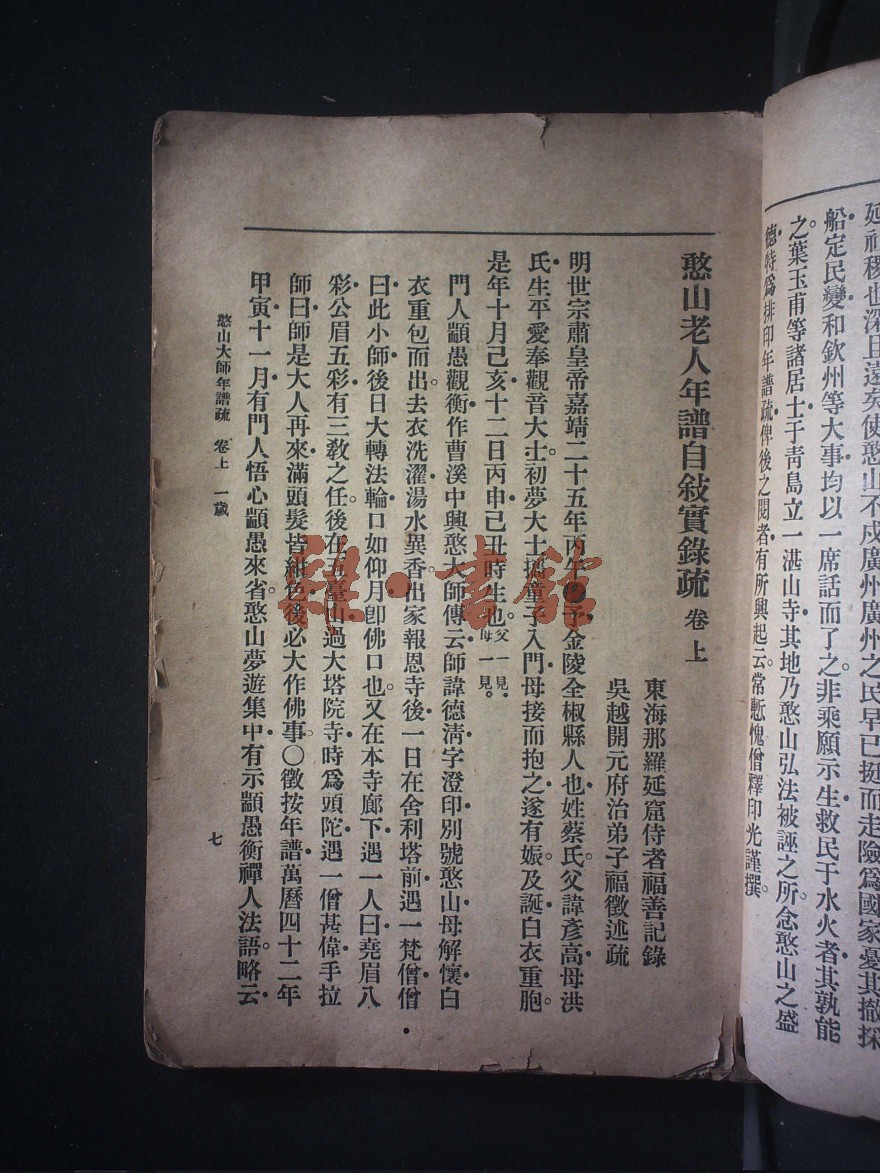 延社稷也深且遠矣使憨山不戍廣州廣州之民早已挺而走險爲國家憂其撤採
船定民變和欽州等大事均以一席話而了之。非乘願示生救民于水火者其孰能
之。葉玉甫等諸居士于靑島立一湛山寺其地乃憨山弘法被誣之所念憨山之盛
德特爲排印年譜疏俾後之閱者有所興起云常慙愧僧釋印光謹撰。
憨山老人年譜自敍實錄疏 卷上
東海那羅延窟侍者福善記錄
吳越開元府治弟子福徵述疏
明世宗肅皇帝嘉靖二十五年丙午予金陵全椒縣人也姓蔡氏。父諱彥高母洪
氏生平愛奉觀音大士。初夢大士攜童子入門母接而抱之遂有娠。及誕白衣重胞。
是年十月己亥十二日丙申己丑時生也。父一見。母一見。
門人顓愚觀衡作曹溪中興憨大師傳云師諱德淸字澄印別號憨山母解懷白
衣重包而出。去衣洗濯湯水異香。出家報恩寺後一日在舍利塔前遇一梵僧僧
曰此小師後日大轉法輪口如仰月卽佛口也。又在本寺廊下遇一人曰堯眉八
彩公眉五彩有三敎之任。後在五臺山過大塔院寺時爲頭陀遇一僧甚偉手拉
師曰師是大人再來滿頭髮皆紺色後必大作佛事。〇徵按年譜萬曆四十二年
甲寅十一月有門人悟心顓愚來省。憨山夢遊集中有示顓愚衡禪人法語。略云
憨山大師年譜疏 卷上 一歲
七
雜·書館